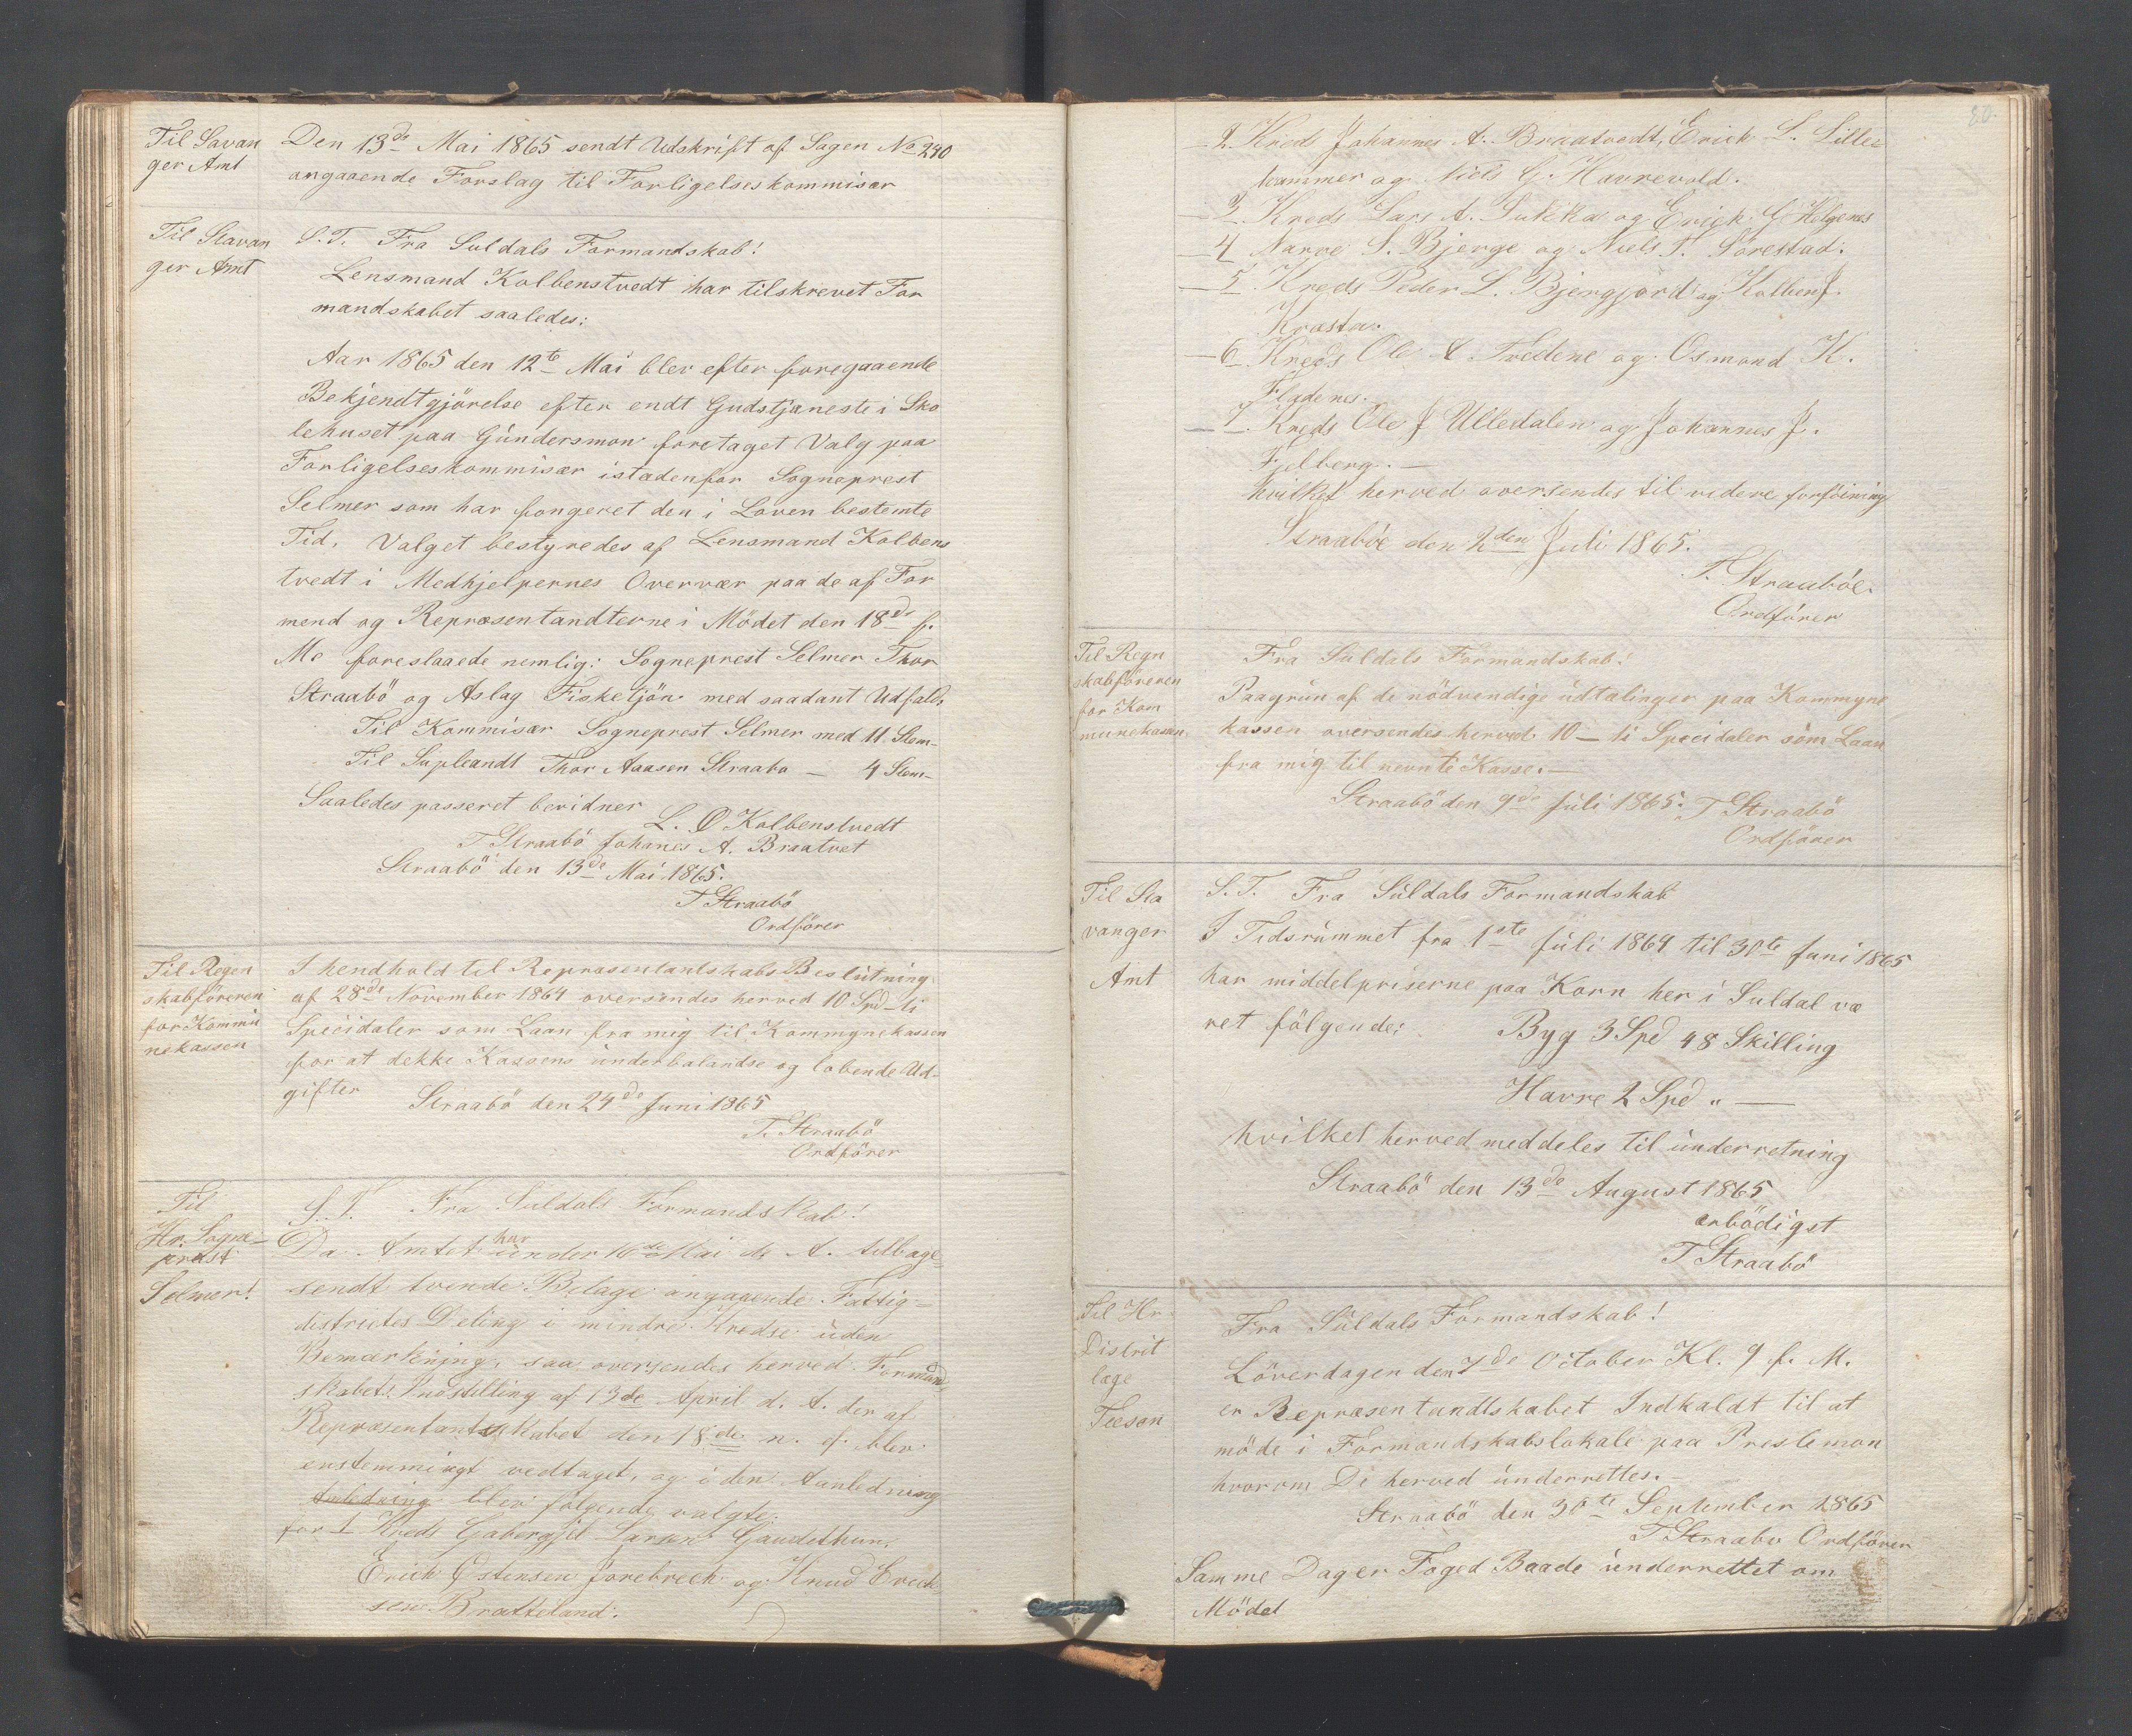 Til Savan
ger Amt
Den 13de Mai 1865 sendt Udskrift af Sagen No 240
angaaende Forslag til Forligelseskommisær
Til Stavan
ger Amt
S.T. Fra Suldals Formandskab!
Lensmand Kolbenstvedt har tilskrevet For
mandskabet saaledes:
Aar 1865 den 12te Mai blev efter foregaaende
Bekjendtgjörelse efter endt Gudstjaneste i Sko
lehuset paa Gundersmon foretaget Valg paa
Forligelseskommisær istadenfor Sogneprest
Selmer som har fongeret den i Loven bestemte
Tid. Valget bestyredes af Lensmand Kolbens
tvedt i Medhjelpernes Overvær paa de af For
mend og Repræsentandterne i Mödet den 18de f.
M. foreslaaede nemlig: Sogneprest Selmer Thor
Straabö og Aslag Fisketjön med saadant Udfald
Til Kommisær Sogneprest Selmer med 11 Stem-
Til Supleandt Thor Aaasen Straabø — 4 Stem-
Saaledes passeret bevidner
L. O Kolbenstvedt
T Straabö Johanes A. Braatvet
Straabö den 13de Mai 1865.
T Straabö
Ordförer
Til Regen
skabföreren
for Kommu
nekassen
I hendhold til Repræsentantskabs Beslutning
af 28de November 1864 oversendes herved 10 Spd - ti
Specidaler som Laan fra mig til Kommynekassen
for at dekke Kassens underbalandse og løbende Ud-
gifter
Straabö den 24de Juni 1865
T. Straabö
Ordförer
Til
Hr. Sogne-
præst
Selmer!
S.T. Fra Suldals Formandskab!
Da Amtet har under 16de Mai d. A. tilbage
sendt tvende Bilage angaaende Fattig=
distrctes Deling i mindre Kredse uden
Bemærkning, saa oversendes herved Formand
skabets Indstilling af 13de April d. A. der af
Repræsentantskabet den 18de n. ef. blev
enstemmingt vedtaget, og i den Aanledning
Anledning blev følgende valgte:
for 1 Kreds Gabergjel Larsen Gaudethun.
Erich Østensen Jorebrech og Knud Erich
sen Bratteland.
80.
— 2. Kreds Johannes A. Braatvedt, Erick L. Lille
hammer og Niels G. Havrevold.
— 3. Kreds Lars A. Sukka og Erich G Helgenes
— 4 Narve S. Bjerge og Niels T. Sørestad.
— 5. Kreds Peder L. Bjergjord og Kolben J.
Kvæstad.
— 6. Kreds Ole A Tvedene og Osmond K.
Fladenes.
— 7. Kreds Ole J Ulledalen og Johannes J.
Fjelberg. —
hvilket herved oversendes til videre forföining
Straaböe den 2den Juli 1865.
T. Straaböe
Ordförer
Til Regn
skabföreren
for Kom
munekasen
Fra Suldals Formandskab!
Paagrun af de nödvendige udtalinger paa Kommyne
kassen oversendes herved 10 — ti Specidaler som Laan
fra mig til nevnte Kasse. —
Straabö den 9de Juli 1865. T Straabö
Ordförer
Til Sta
vanger
Amt
S.T. Fra Suldals Formandskab
I Tidsrummet fra 1ste Juli 1864 til 30te Juni 1865
har middelpriserne paa Korn her i Suldal væ
ret fölgende: Byg 3 Spd 48 Skilling
Havre 2 Spd " —
hvilket herved meddeles til underretning
Straabö den 13de August 1865
ærbödigst
T Straabö
Til Hr
Distrit
læge
Teeson
Fra Suldals Formandskab!
Löverdagen den 7de October Kl. 9 f. M.
er Repræsentandtskabet Indkaldt til at
möde i Formandskabslokale paa Preslemon
hvorom De herved underrettes. —
Straabö den 30te September 1865
T Straabö Ordförer
Samme Dag er Foged Baade underrettet om
Mödet